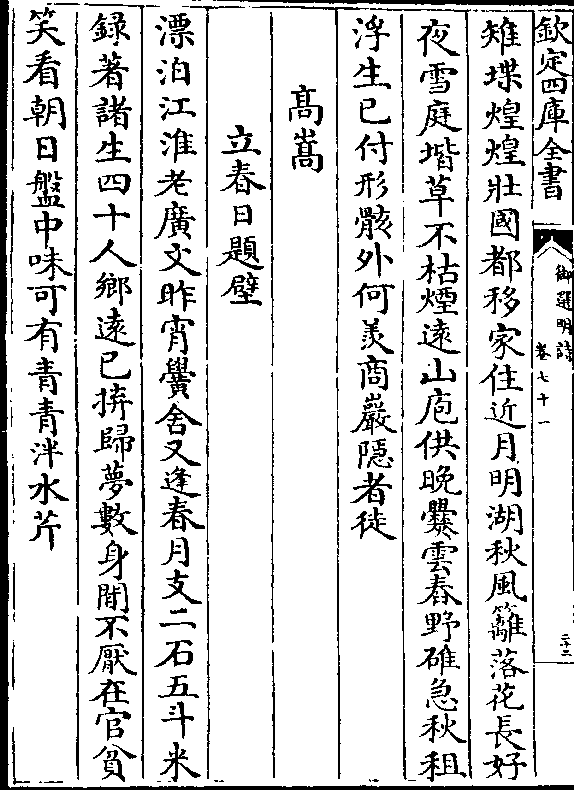 欽定四庫全書
御選明詩
卷七十一
二十二
雉堞煌煌壯國都移家住近月明湖秋風籬落花長好
夜雪庭堦草不枯煙遠山庖供晚爨雲舂野碓急秋租
浮生已付形骸外何羨商巖隱者徒
高嵩
立春日題壁
漂泊江淮老廣文昨宵黌舍又逢春月支二石五斗米
録著諸生四十人鄉遠已拚歸夢數身閒不厭在官貧
笑看朝日盤中味可有青青泮水芹